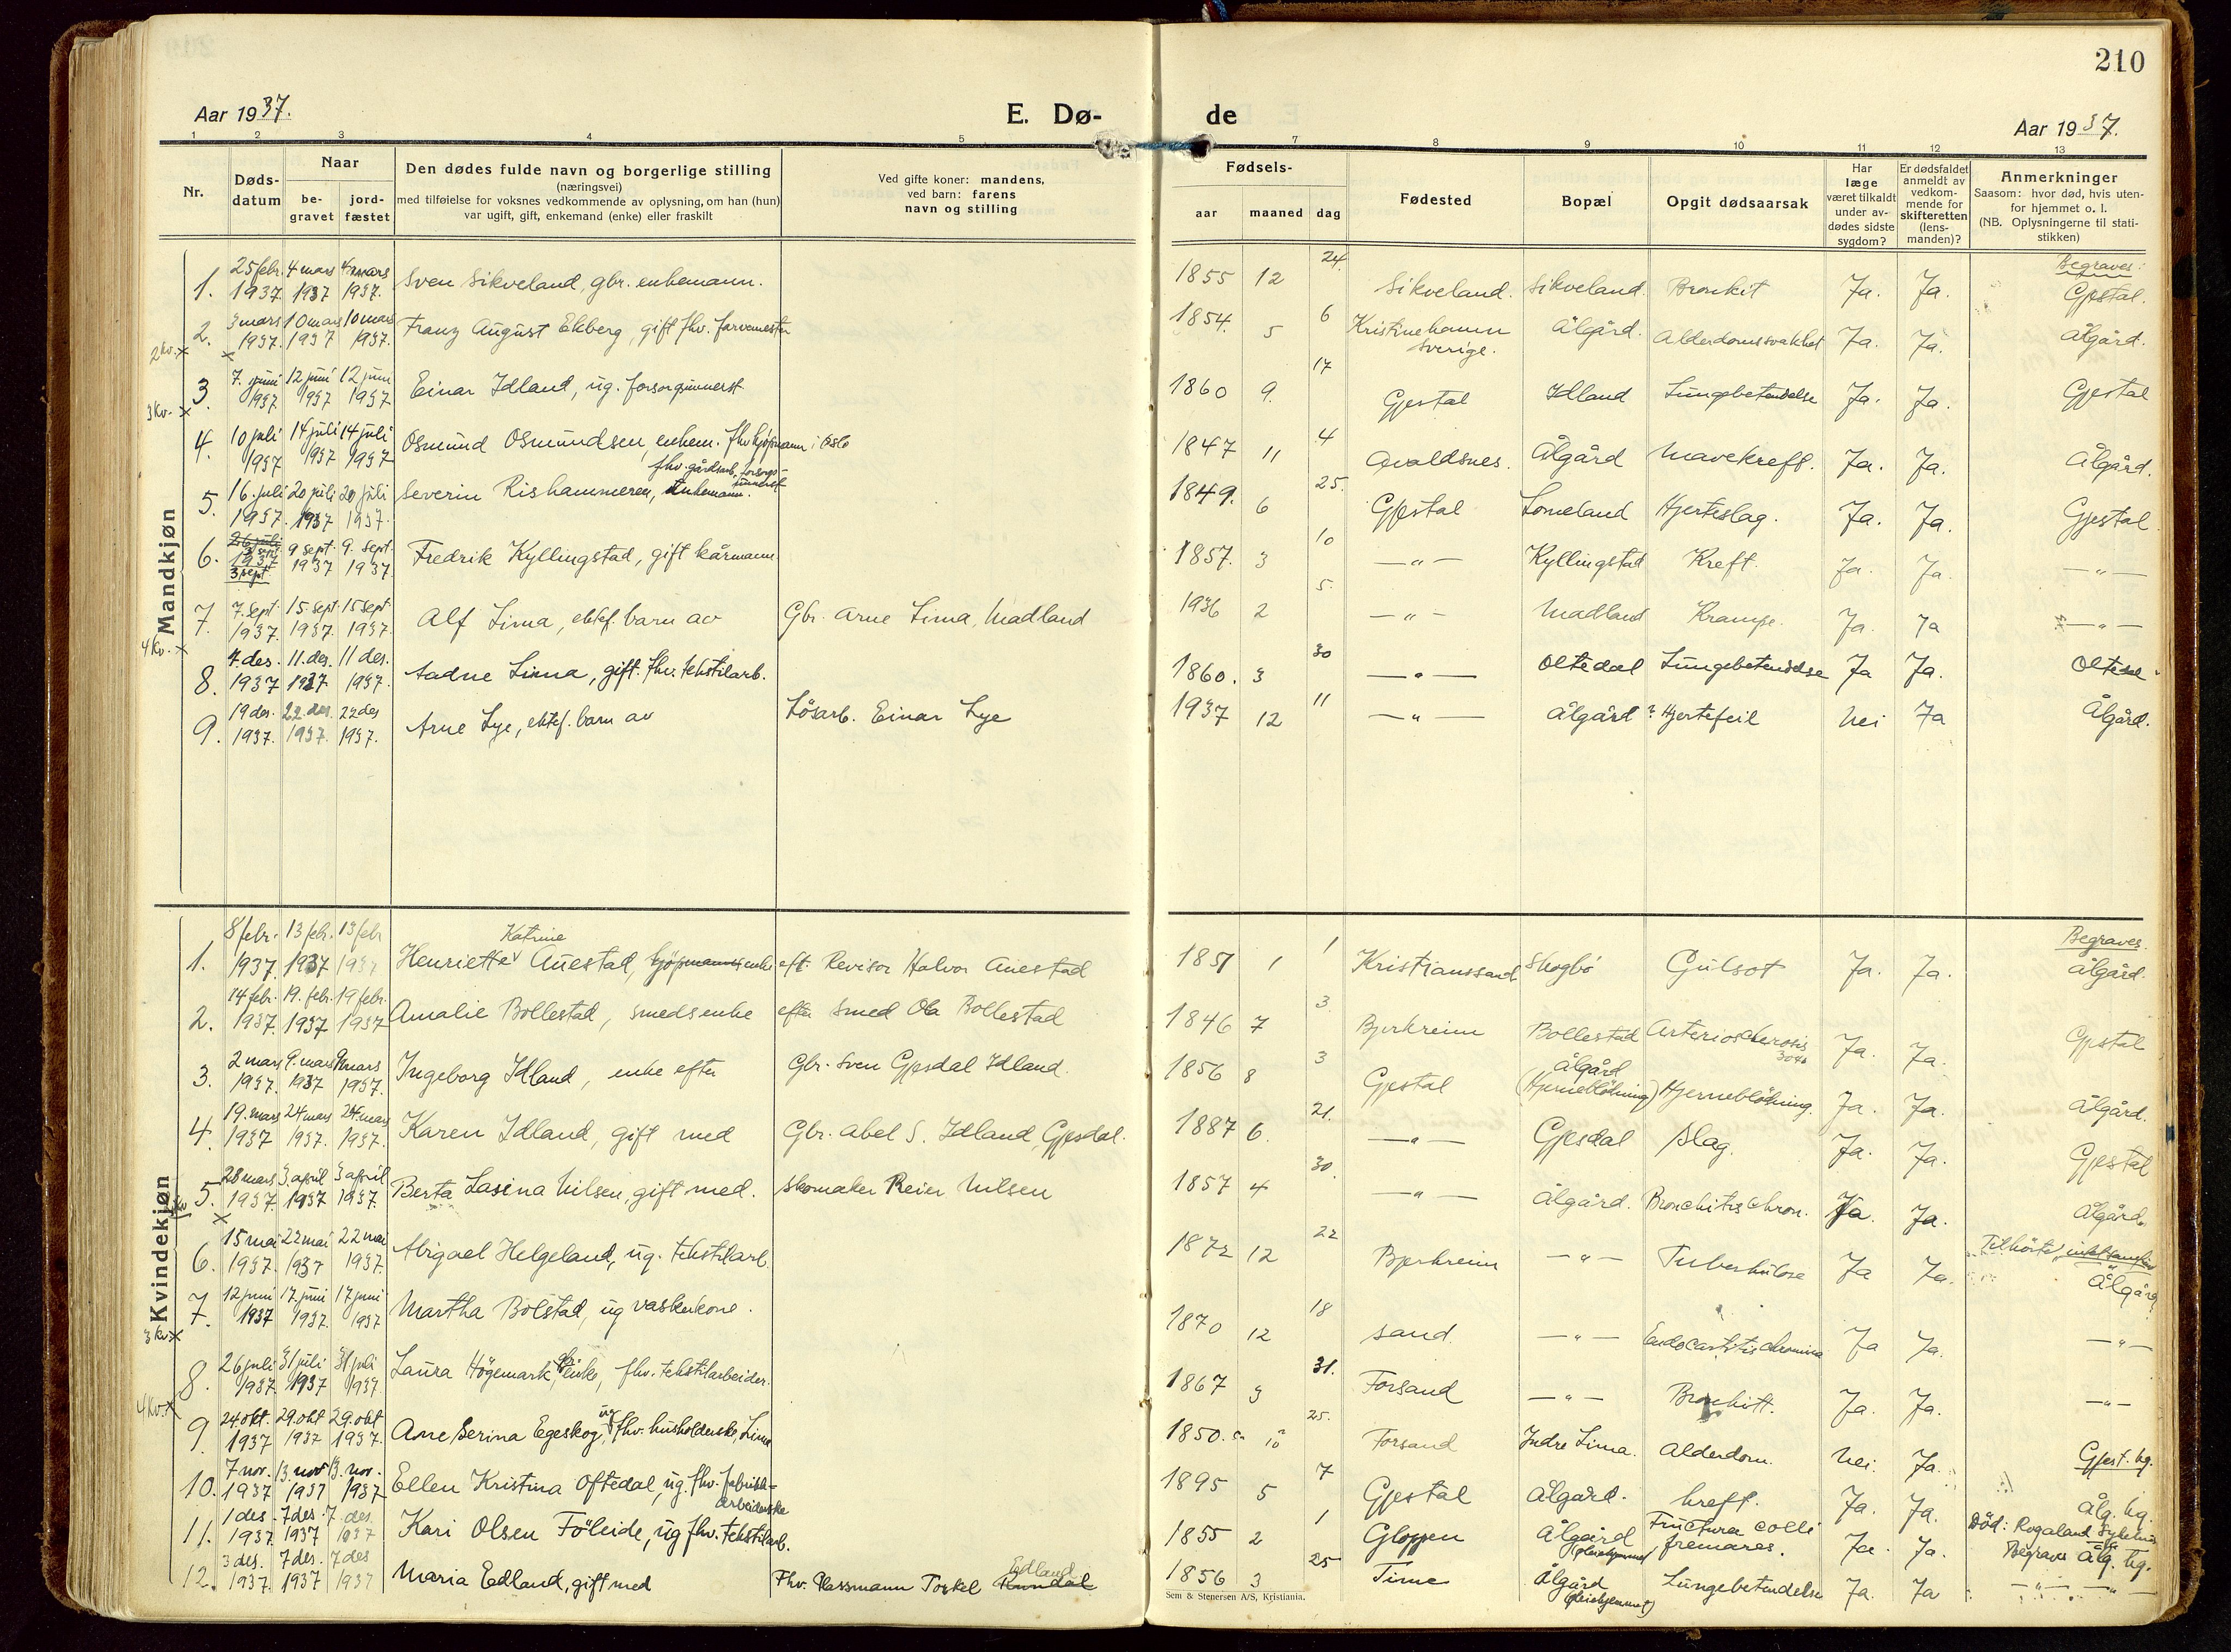 210
Aar 1937.
E. Dø-
de
Aar 1937.
1 2 3 4 5 7 8 9 10 11 12 13
Nr.
Døds-
datum
Naar
be-
gravet
jord-
fæstet
Den dødes fulde navn og borgerlige stilling
(næringsvei)
med tilføielse for voksnes vedkommende av oplysning, om han (hun)
var ugift, gift, enkemand (enke) eller fraskilt
Ved gifte koner: mandens,
ved barn: farens
navn og stilling
Fødsels-
aar maaned dag
Fødested
Bopæl
Opgit dødsaarsak
Har
læge
været tilkaldt
under av-
dødes sidste
sygdom?
Er dødsfaldet
anmeldt av
vedkom-
mende for
skifteretten
(lens-
manden)?
Anmerkninger
Saasom: hvor død, hvis uten-
for hjemmet o. l.
(NB. Oplysningerne til stati-
stikken)
Mandkjøn
Begraves:
1. 25 febr. 1937. 4 mars 1937 4 mars 1937. Sven Sikveland, gbr. enkemann. 1855 12 24. Sikveland. Sikveland. Bronkit Ja. Ja. Gjestal.
2 kv. x
2. 3 mars 1937. 10 mars 1937 10 mars 1937. Franz August Ekberg, gift fhv. farvemester 1854. 5 6 Kristinehamn Sverige. Ålgård. Alderdomssvakhet Ja. Ja. Ålgård.
3 kv. x
3. 7. juni 1937 12 juni 1937 12 juni 1937 Einar Idland, ug. forsorgsunderst. 1860 9. 17 Gjestal Idland Lungebetendelse Ja. Ja. Gjestal
4. 10 juli 1937 14 juli 1937 14 juli 1937 Osmund Osmundsen, enkem. fhv. kjøpmann i Oslo 1847 11 4 Avaldsnes. Ålgård Mavekreft. Ja. Ja. Ålgård.
5. 16. juli 1937. 20 juli 1937 20 juli 1937. Severin Rishammeren, enkemann. fhv. gårdsarb, forsorgs- underst. 1849. 6 25. Gjestal Lomeland Hjerteslag. Ja. Ja. Gjestal.
6. 3 sept. 9 sept. 1937 9. sept. 1937. Fredrik Kyllingstad, gift kårmann 1857. 3 10 —"— Kyllingstad Kreft. Ja. Ja. —"—
7. 7. sept. 1937. 15. sept. 1937. 15 sept. 1937. Alf Lima, ektef. barn av Gbr. Arne Lima, Madland 1936 2 5. —"— Madland Krampe. Ja. Ja —"—
4 kv. x
8. 4. des. 1937 11. des. 1937 11 des. 1937. Aadne Lima, gift. fhv. tekstilarb. 1860. 3 30 —"— Oltedal Lungebetendelse Ja Ja. Oltedal.
9. 19 des. 1937. 22 des. 1937. 22 des 1937. Arne Lye, ektef. barn av Løsarb. Einar Lye 1937 12 11 —"— Ålgård ? Hjertefeil Nei Ja Ålgård.
Kvindekjøn
Begraves.
1. 8 febr. 1937. 13 feb. 1937 13 feb 1937 Henriette Katrine Auestad, kjøpmanns enke eft. Revisor Halvor Auestad 1851 1 1 Kristianssand Skogbø Gulsot Ja. Ja. Ålgård.
2. 14 febr. 1937. 19. febr. 1937 19 febr. 1937 Amalie Bollestad, smedsenke efter Smed Ola Bollestad 1846 7 3. Bjerkreim Bollestad Arteriosclerosis Ja. Ja. Gjestal
3. 2 mars 1937. 9. mars 1937 9 mars 1937. Ingeborg Idland, enke efter Gbr. Sven Gjesdal Idland. 1856 8 3 Gjestal Ålgård (Hjerneblödning) Hjerneblödning. Ja. Ja. Ålgård.
4. 19. mars 1937 24 mars 1937. 24. mars 1937. Karen Idland, gift med Gbr. Abel S. Idland, Gjesdal. 1887 6. 21. —"— Gjesdal Slag. Ja. Ja. Gjestal
5. x 28 mars 1937 3. april 1937 3 april 1937. Berta Lasina Nilsen, gift med. Skomaker Reier Nilsen 1857 4 30. —"— Ålgård. Bronchitis chron. Ja. Ja. Ålgård.
6. 15 mai 1937. 22 mai 1937 22 mai 1937. Abigael Helgeland, ug. tekstilarb. 1872 12 22 Bjerkreim —"— Tuberkulose Ja Ja. Tilhörte Ålgård
7. 12 juni 1937 17 juni 1937. 17 juni 1937 Martha Bolstad, ug vaskekone. 1870 12 18 Sand. —"— Endocarditis chronica Ja Ja. —"—
3 kv. x
8. 26 juli 1937 31 juli 1937 31 juli 1937. Laura Högemark, enke, fhv. tekstilarbeider. 1867 3 31. Forsand —"— Bronchitt. Ja. Ja. —"—
4 kv. x
9. 24. okt. 1937 29. okt 1937 29. okt 1937. Ane Serina Egeskog, ug fhv. husholderske, Lima 1850. 10 25. Forsand Indre Lima. Alderdom. Nei. Ja. Gjest. kg.
10. 7 nov. 1937 13. nov 1937 13. nov. 1937 Ellen Kristina Oftedal, ug. fhv. fabrikk- arbeiderske 1895 5 7 Gjestal Ålgård. kreft. Ja. Ja. Ålg. kg.
11. 1 des. 1937. 7 des. 1937 7 des. 1937 Kari Olsen Föleide, ug fhv. tekstilarb. 1855 2 1 Gloppen Ålgård (pleiehjemmet) Fructura colli fremares. Ja. Ja. Död: Rogaland Sykehus Begraves Ålg. kg.
12. 3 des. 1937. 7 des. 1937 7 des 1937 Maria Edland, gift med Fhv. Plassmann Torkel Edland 1856 3 25 Time Ålgård (pleiehjemmet) Lungebetendelse Ja. Ja —"— —"—
Sem & Stenersen A/S, Kristiania.